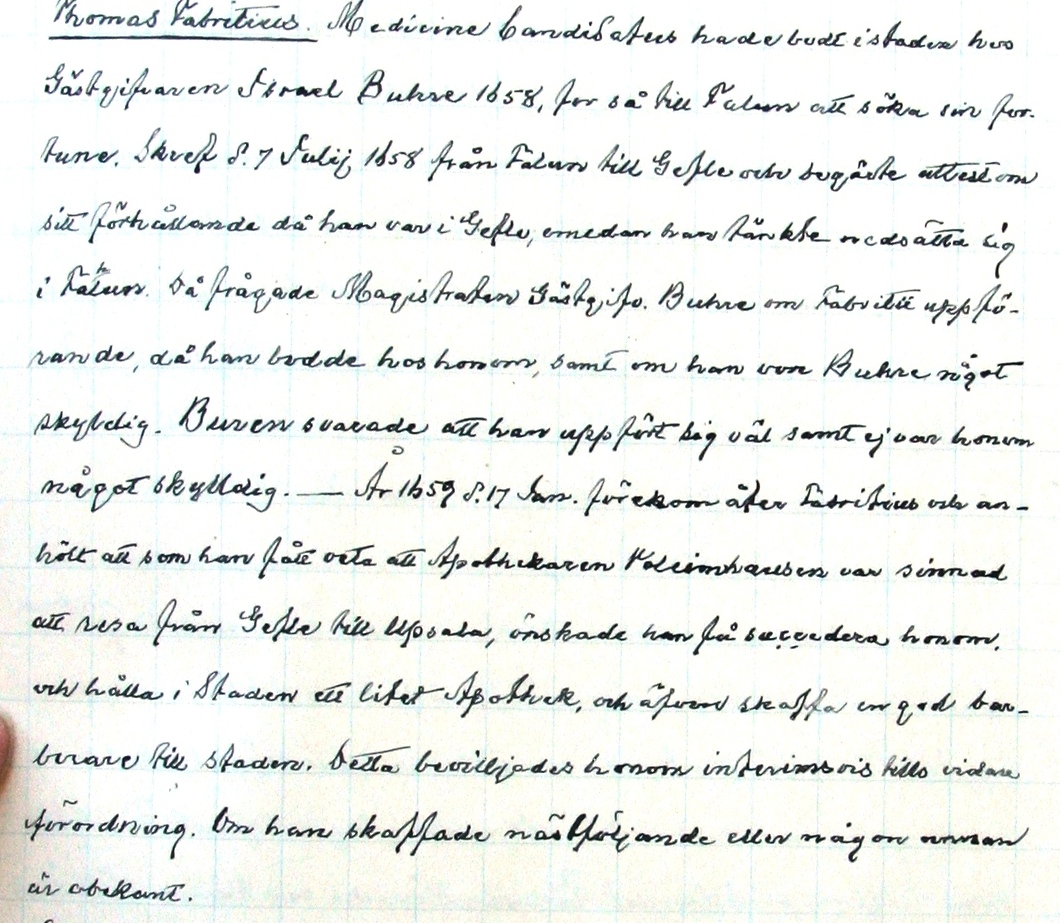 Thomas Fabritius. Medicine Candidatus hade bodt i staden hos
Gästgifvaren Israel Buhre 1658, for så till Falun att söka sin for-
tune. Skref d. 7 Julij 1658 från Falun till Gefle och begärte attest om
sitt förhållande då han var i Gefle, emedan han tänkte nedsätta sig
i Falun. Då frågade Magistraten Gästgifv. Buhre om Fabritii uppfö-
rande, då han bodde hos honom, samt om han vore Buhre något
skyldig. Buren svarade att han uppfört sig väl samt ej var honom
något skylldig. — År 1659 d. 17 Jan. förekom åter Fabritius och an-
hölt att som han fått veta att Apothekaren var sinnad
att resa från Gefle till Upsala, önskade han få succedera honom,
och hålla i Staden ett litet Apothek, och äfven skaffa en god bar-
berare till staden. Detta beviljades honom interimsvis tills vidare
förordning. Om han skaffade nästföljande eller någon annan
är obekant.